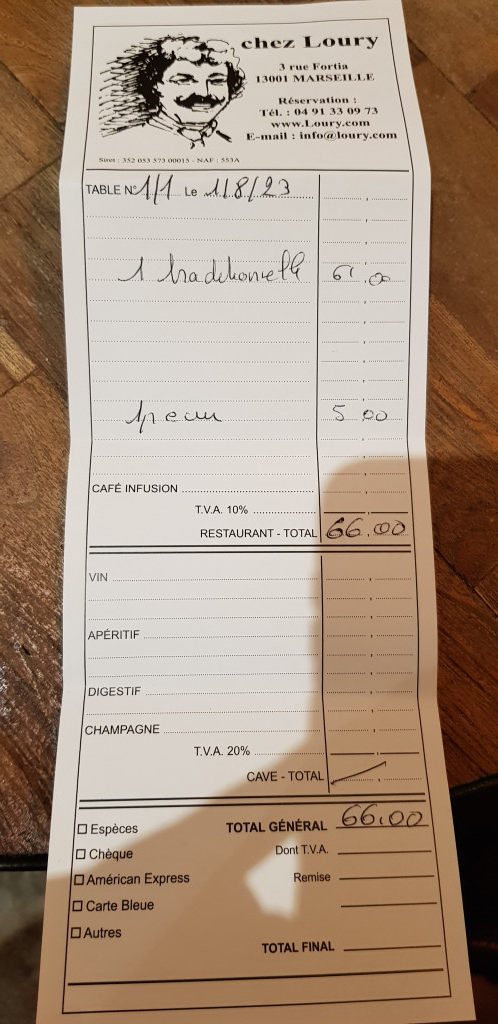 chez Loury
3 rue Fortia
13001 MARSEILLE
Réservation :
Tél. : 04 91 33 09 73
www.Loury.com
E-mail : info@loury.com
Siret : 352 053 573 00015 - NAF : 553A
TABLE N° 1/1 Le 1/8/23
1 traditionnelle 61.00
5.00
CAFÉ INFUSION
T.V.A. 10%
RESTAURANT - TOTAL 66.00
VIN
APÉRITIF
DIGESTIF
CHAMPAGNE
T.V.A. 20%
CAVE - TOTAL
Espèces TOTAL GÉNÉRAL 66.00
Chèque Dont T.V.A.
Américan Express Remise
Carte Bleue
Autres
TOTAL FINAL